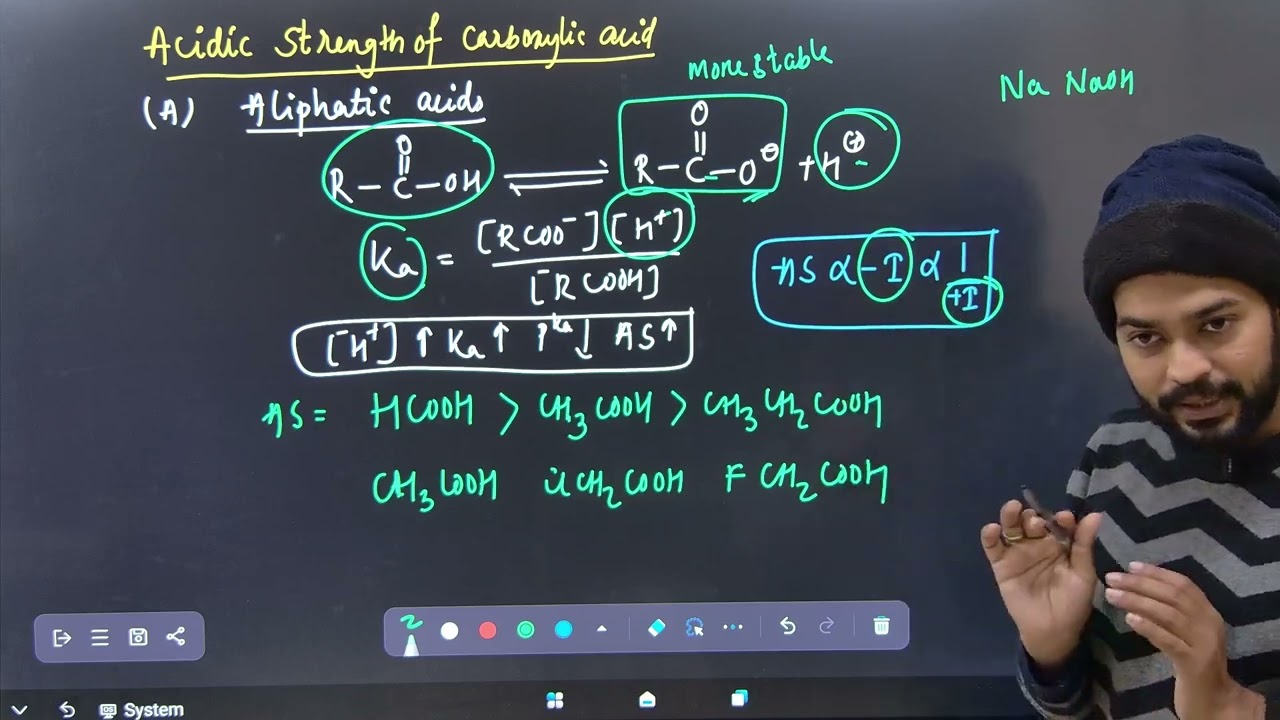 Acidic strength of carboxylic acid
more stable
Na NaOH
(A) Aliphatic acids
O
||
R–C–OH ⇌ R–C–O⊖ + H⊕
O
||
Ka = [RCOO⁻][H⁺]
[RCOOH]
AS ∝ -I ∝ 1
+I
[H⁺] ↑ Ka ↑ Pka ↓ AS ↑
AS = HCOOH > CH₃COOH > CH₃CH₂COOH
CH₃COOH ClCH₂COOH FCH₂COOH
System